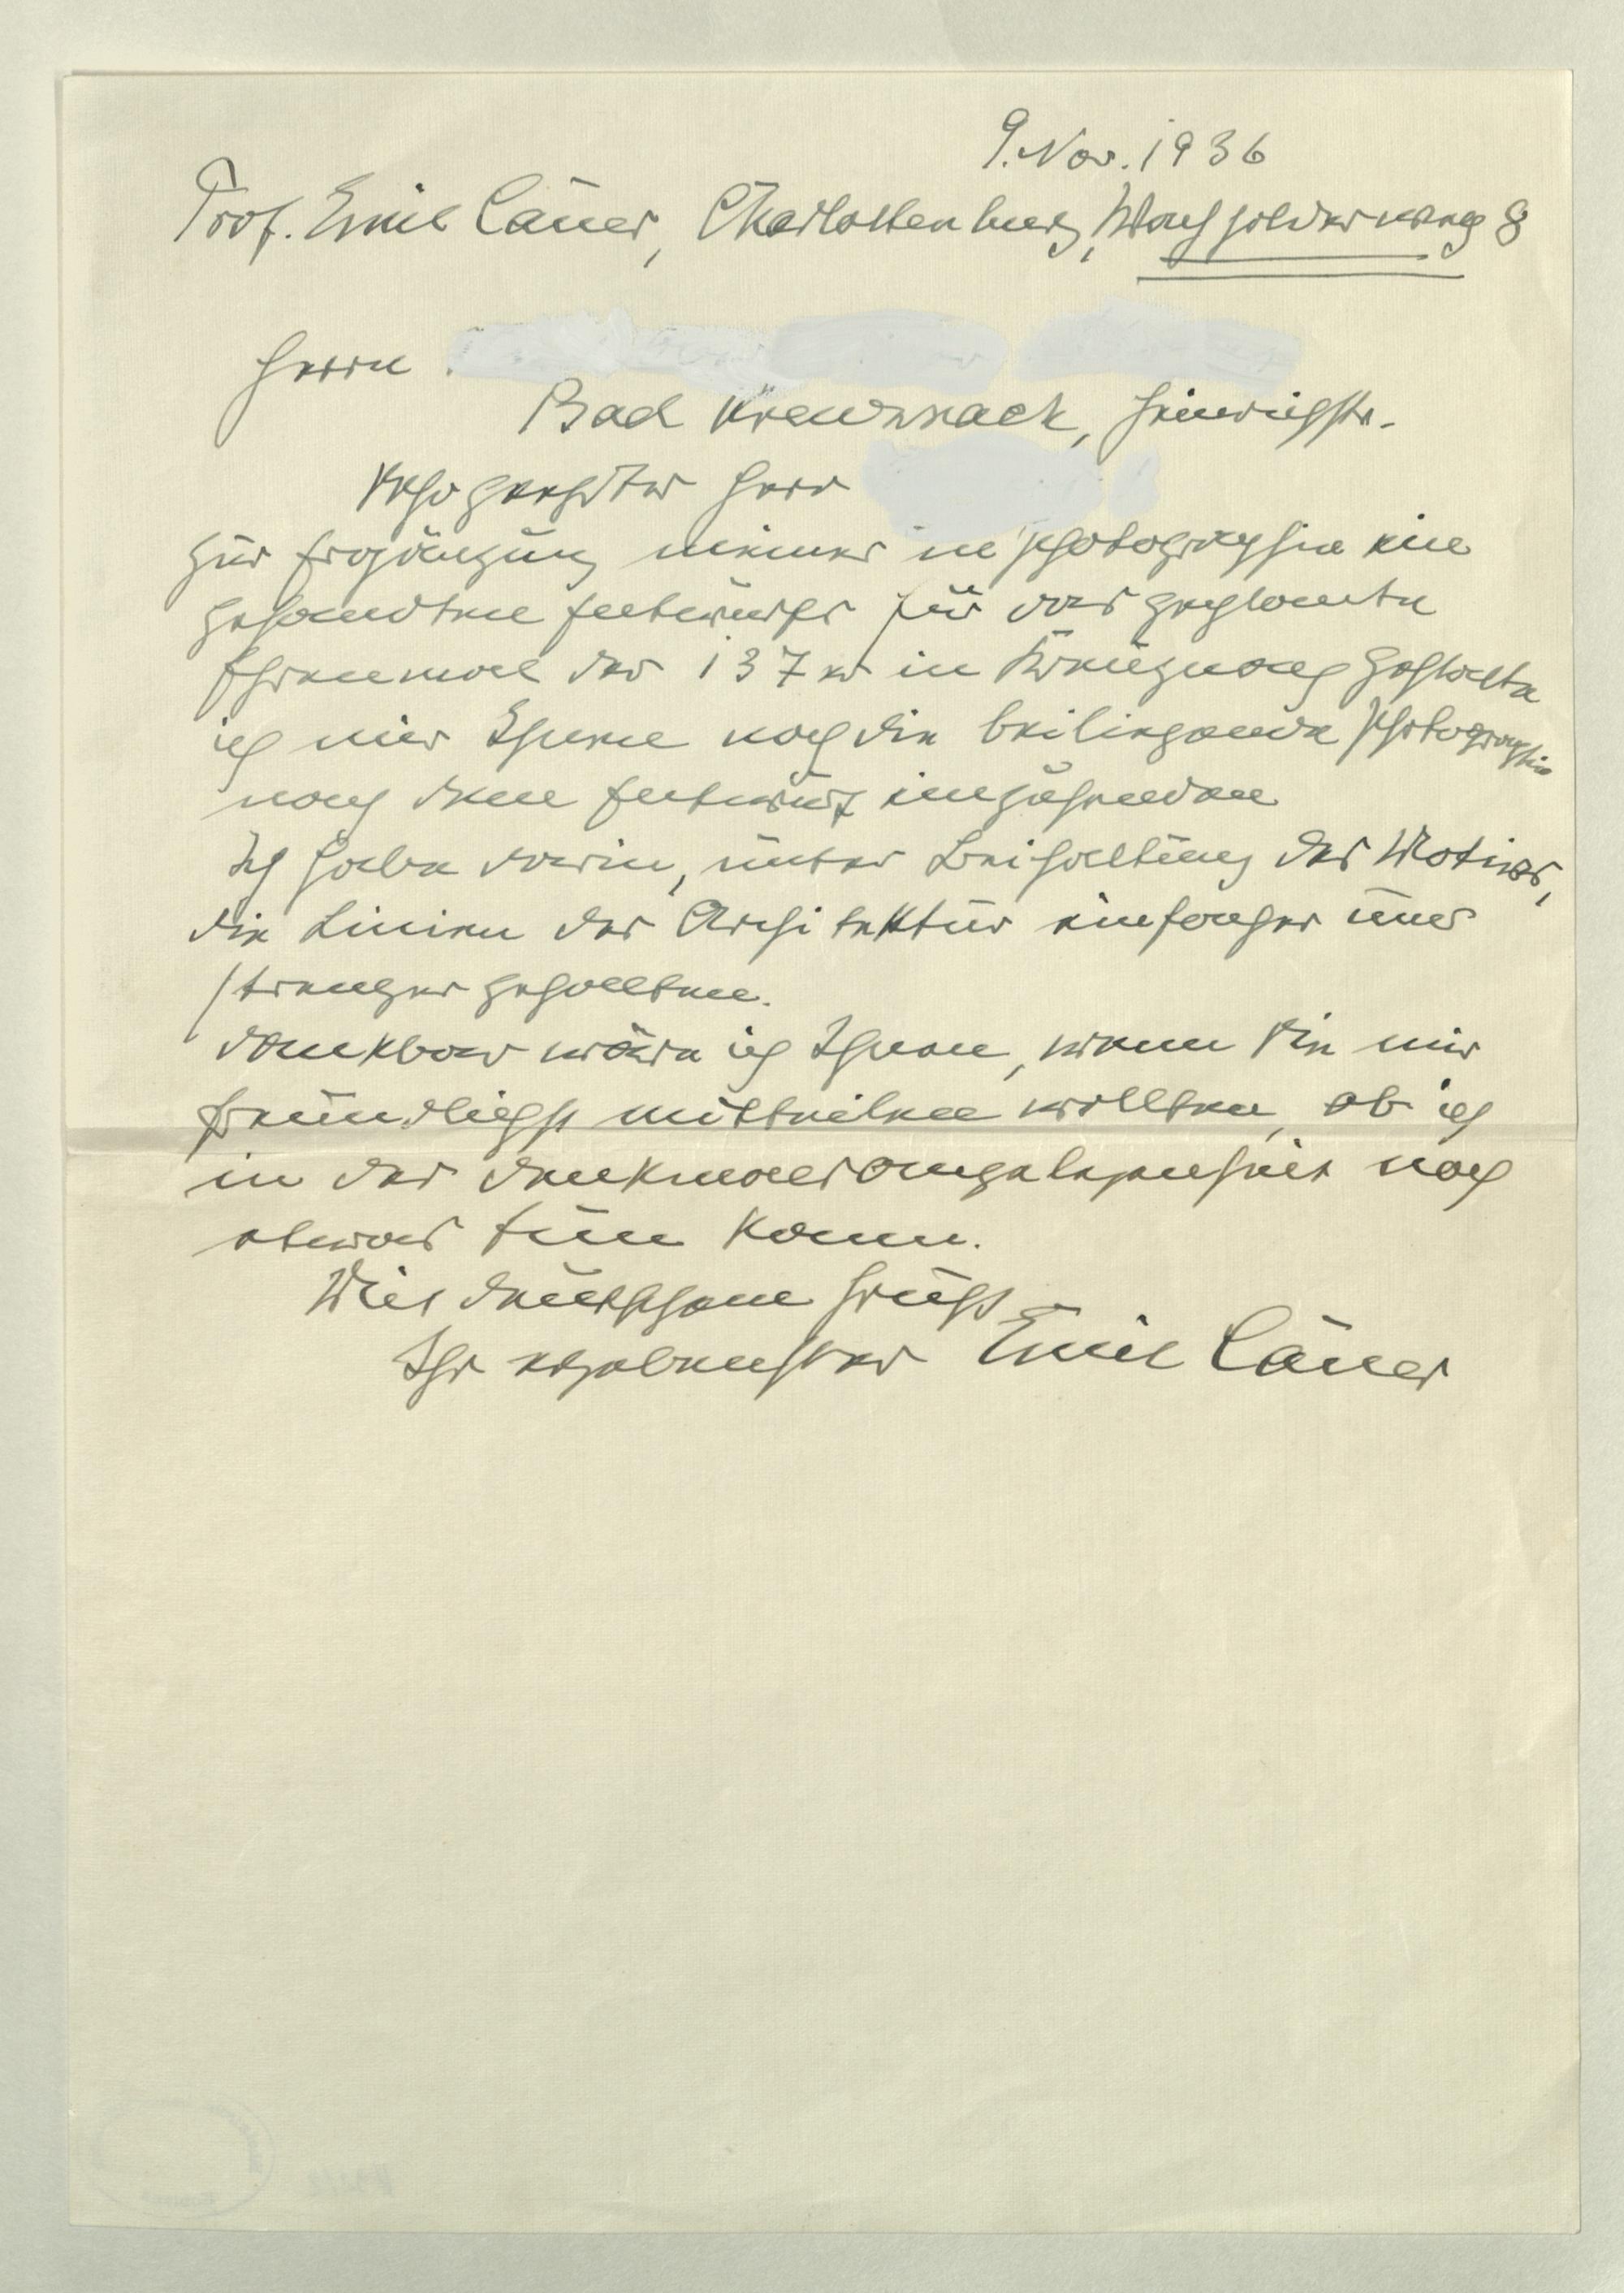 9. Nov. 1936
Prof. Emil Cauer, Charlottenburg, Wachholderweg 8
Herrn
Bad Kreuznach, Heinrichstr.
Sehr geehrter Herr
zur Ergänzung meiner in Photographie ein
gesandten Entwürfe für das geplante
Ehrenmal der 137er in Kreuznach gestatte
ich mir Ihnen noch die beiliegende Photographie
nach dem Entwurf einzusenden
Ich habe darin, unter Beihaltung des Motives,
die Linien der Architektur einfacher und
strenger gehalten.
Dankbar wäre ich Ihnen, wenn Sie mir
freundlichst mitteilen wollten, ob ich
in der Denkmalsangelegenheit noch
etwas tun kann.
Mit deutschem Gruß
Ihr ergebenster Emil Cauer